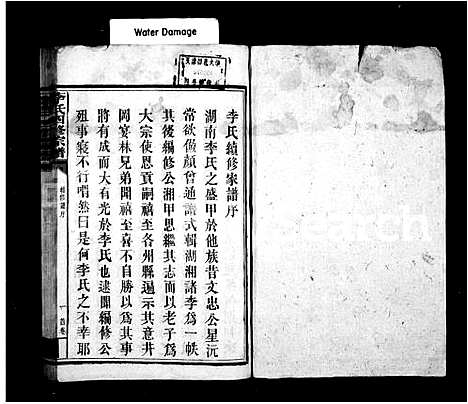 Water Damage
李氏續修家譜序
湖南李氏之盛甲於他族昔文忠公星沅
常欲倣顏曾通譜式輯湖湘諸李爲一帙
其後編修公湘甲思繼其志而以老子爲
大宗使恩貢嗣禧至各州縣遍示其意井
岡宴林兄弟聞禧至喜不自勝以爲其事
將有成而大有光於李氏也逮聞編修公
殂事寢不行喟然曰是何李氏之不幸耶
李氏四修宗譜
續修譜序
一
首卷